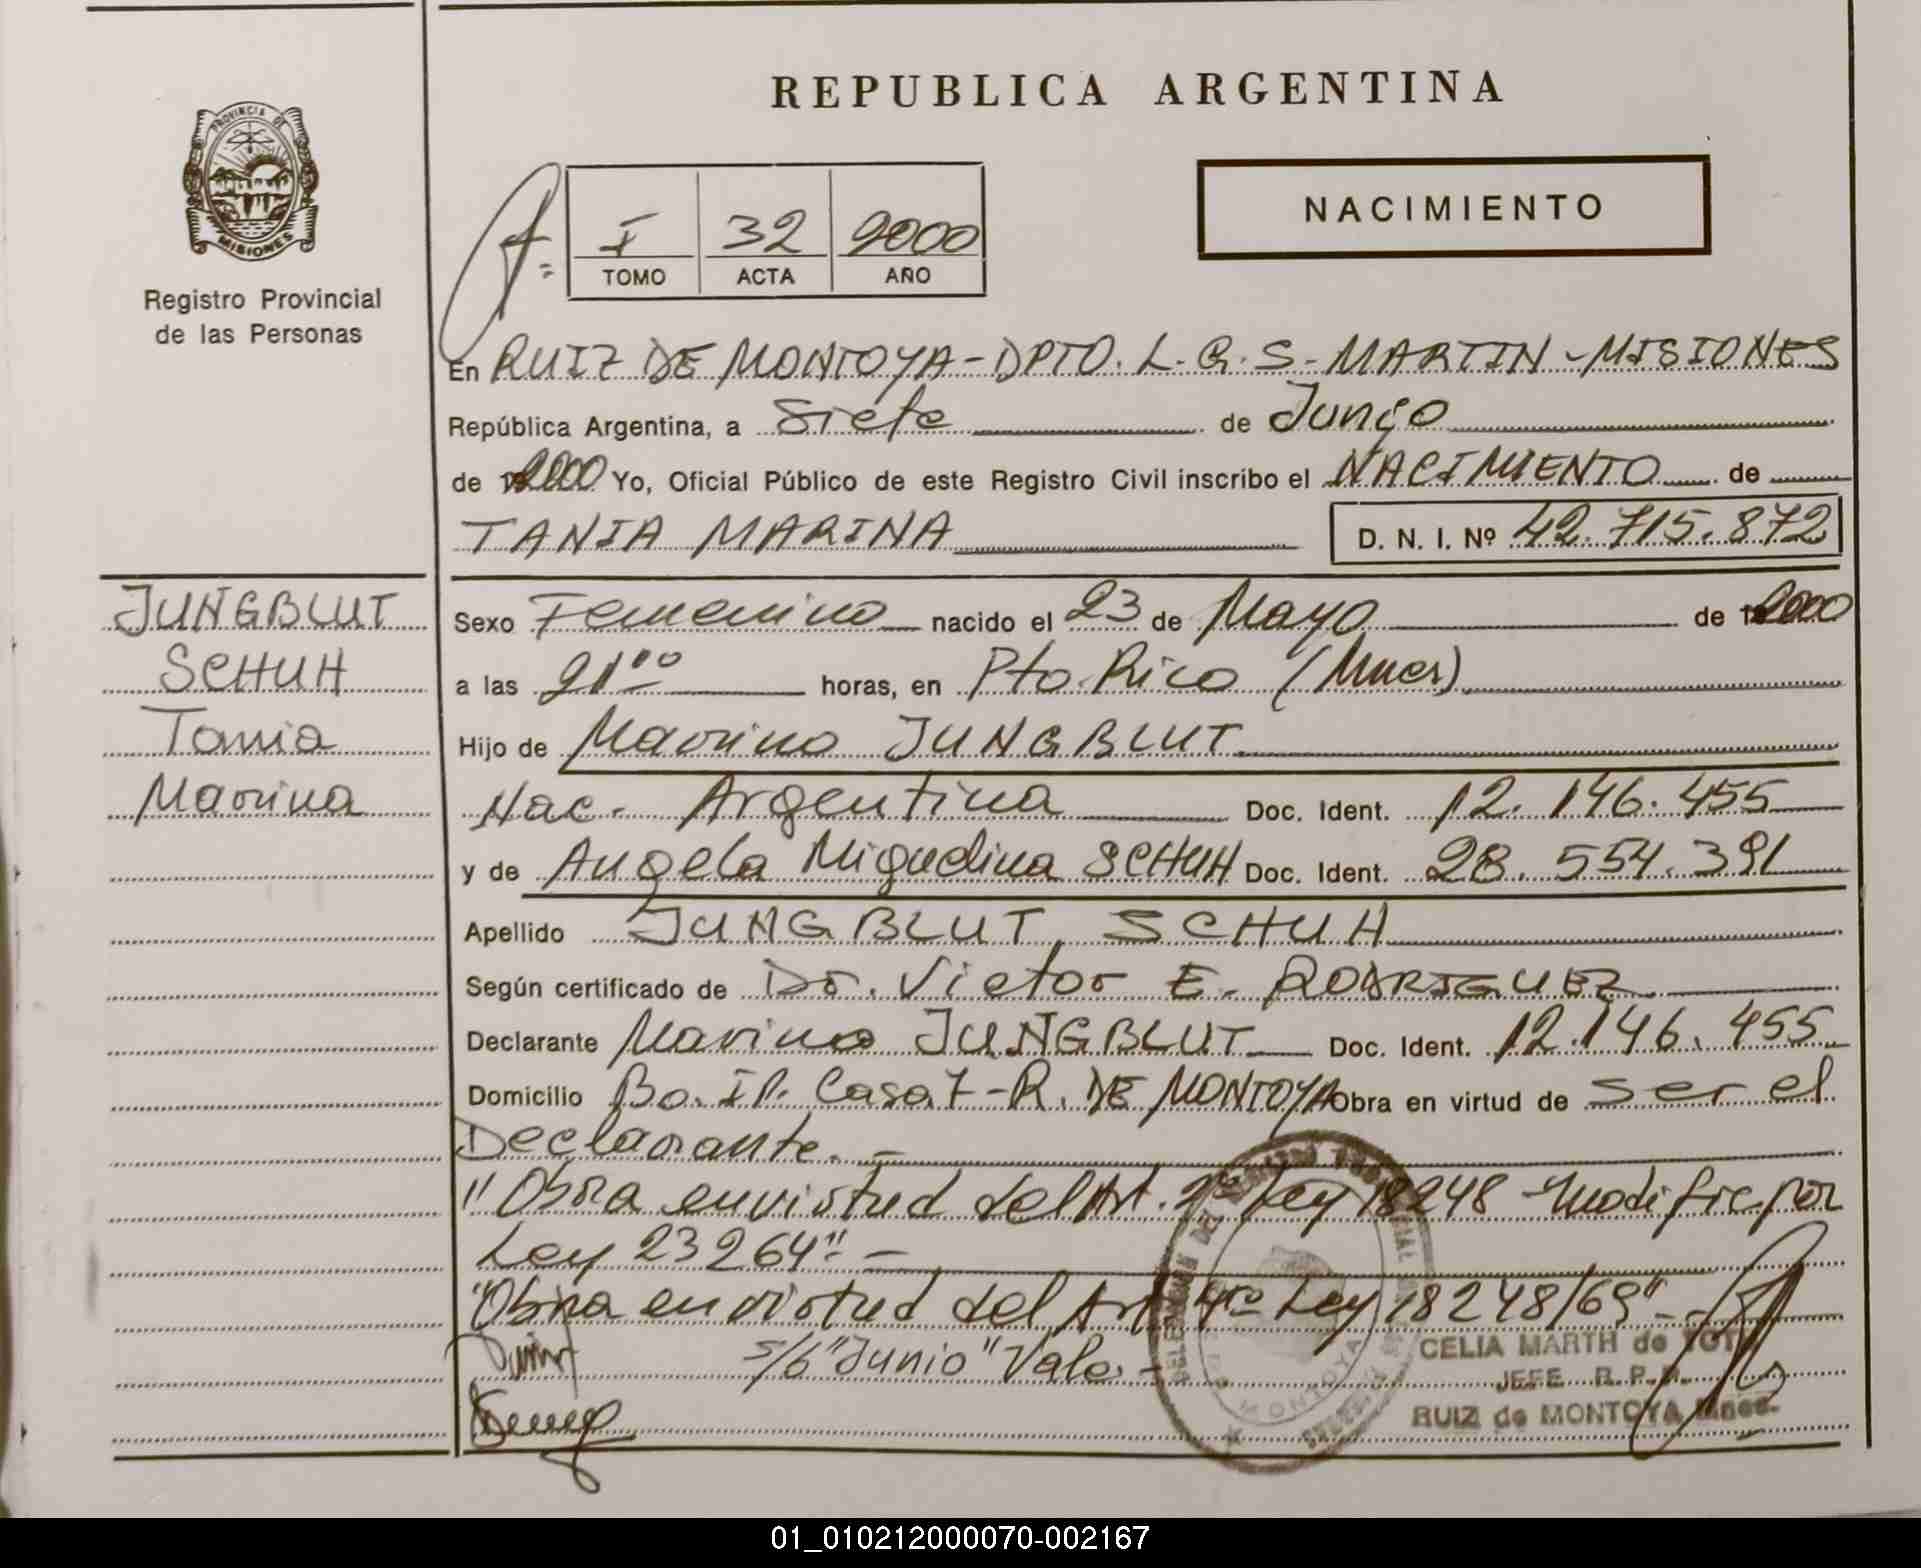 REPUBLICA ARGENTINA
PROVINCIA DE
MISIONES
Registro Provincial
de las Personas
I 32 2000
TOMO ACTA AÑO
NACIMIENTO
En RUIZ DE MONTOYA - DPTO. L. G. S - MARTIN - MISIONES
República Argentina, a Siete de Junio
de 2000 Yo, Oficial Público de este Registro Civil inscribo el NACIMIENTO de
TANIA MARINA D. N. I. Nº 42.715.872
JUNGBLUT
SCHUH
Tania
Marina
Sexo Femenino nacido el 23 de Mayo de 2000
a las 21:00 horas, en Pto. Rico (Mnes)
Hijo de Marino JUNGBLUT
Nac. Argentina Doc. Ident. 12.146.455
y de Angela Miguelina SCHUH Doc. Ident. 28.554.391
Apellido JUNGBLUT SCHUH
Según certificado de Dr. Victor E. RODRIGUEZ
Declarante Marino JUNGBLUT Doc. Ident. 12.146.455
Domicilio Bo. IP. Casa 7 - R. DE MONTOYA Obra en virtud de ser el
Declarante. -
"Obra en virtud del Art. 2º Ley 18248 modific por
Ley 23264" -
"Obra en virtud del Art 4to Ley 18248/69" -
s/b "Junio" Vale. -
CELIA MARTH de
JEFE R. P. P.
RUIZ de MONTOYA Mnes-
01_010212000070-002167